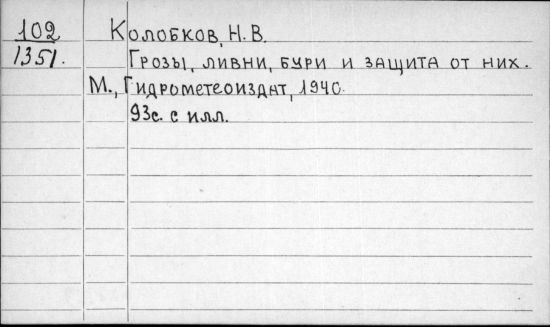 102
1351.
Колобков, Н. В.
Грозы, ливни, бури и защита от них.
М., Гидрометеоиздат, 1940.
93с. с илл.